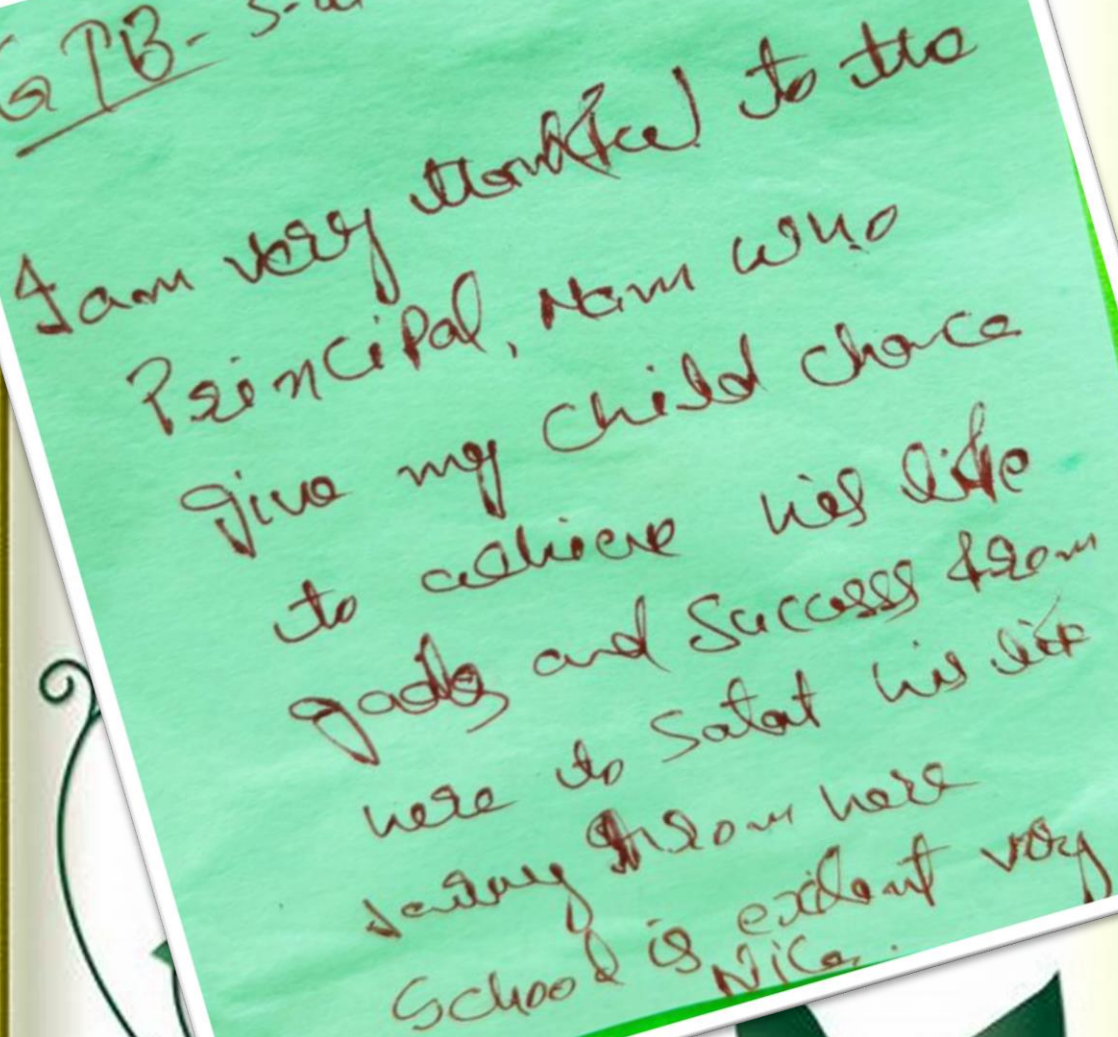 I am very thankful to the
Principal, Mam who
give my child chance
to achieve his life
goals and Success from
here to Satat his life
from here
School is exelant very
Nice.